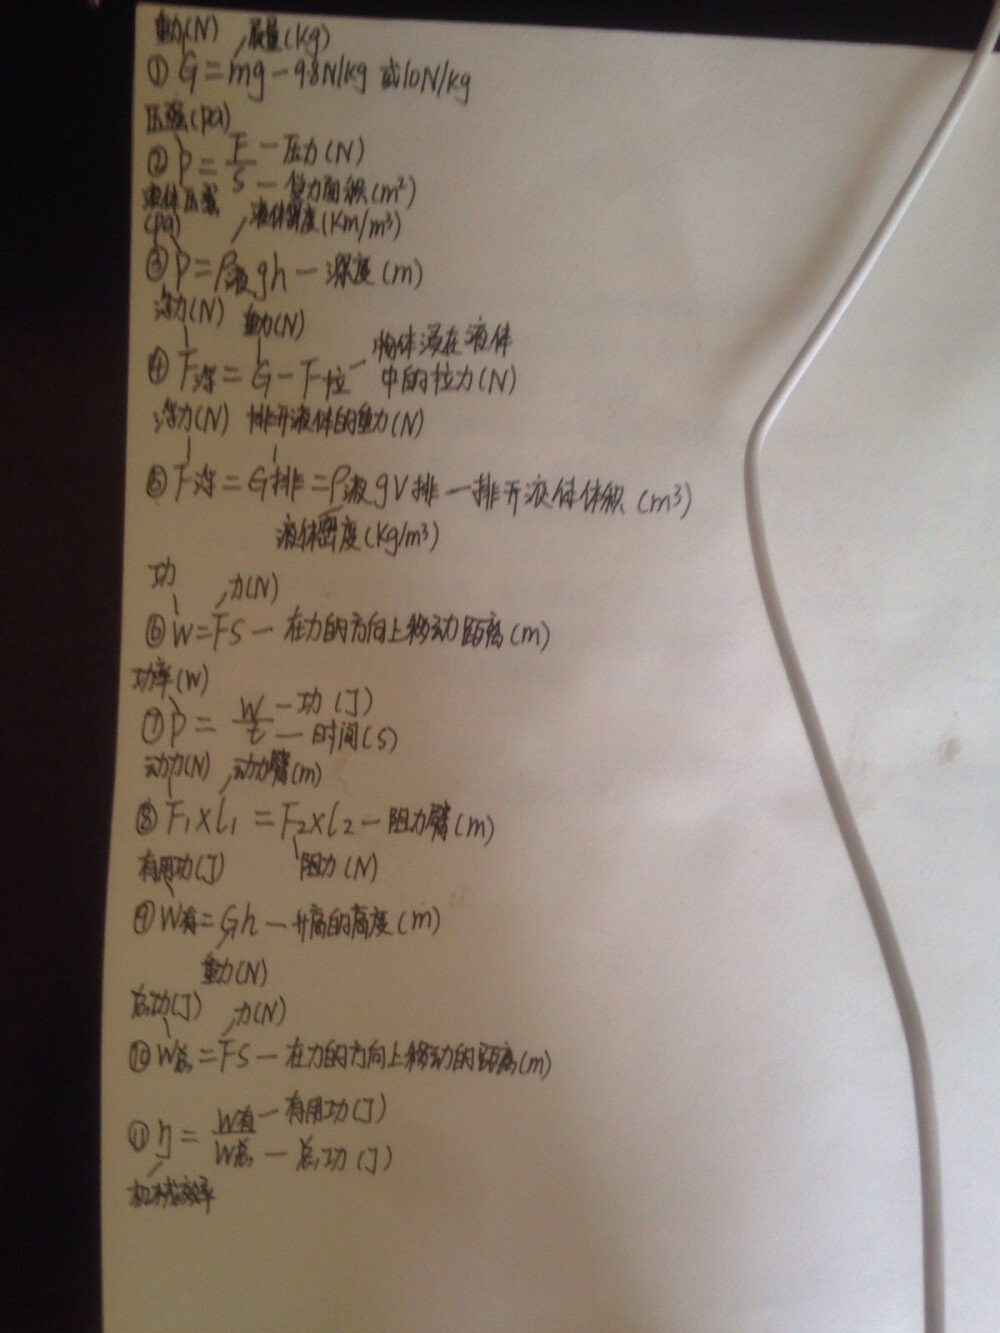 重力(N) 质量(kg)
① G=mg—9.8N/kg 或10N/kg
压强(pa)
② P=F/S —压力(N)
—受力面积(m²)
液体压强
(pa) 液体密度(Km/m³)
③ P=ρ液gh—深度(m)
浮力(N) 重力(N)
④ F浮=G-F拉—物体浸在液体
中的拉力(N)
浮力(N) 排开液体的重力(N)
⑤ F浮=G排=ρ液gV排—排开液体体积(m³)
液体密度(kg/m³)
功 力(N)
⑥ W=FS—在力的方向上移动距离(m)
功率(W)
⑦ P=W/t —功(J)
—时间(s)
动力(N) 动力臂(m)
⑧ F₁×l₁=F₂×l₂—阻力臂(m)
有用功(J) 阻力(N)
⑨ W有=Gh—升高的高度(m)
重力(N)
总功(J) 力(N)
⑩ W总=FS—在力的方向上移动的距离(m)
⑪ η=W有/W总 —有用功(J)
—总功(J)
机械效率